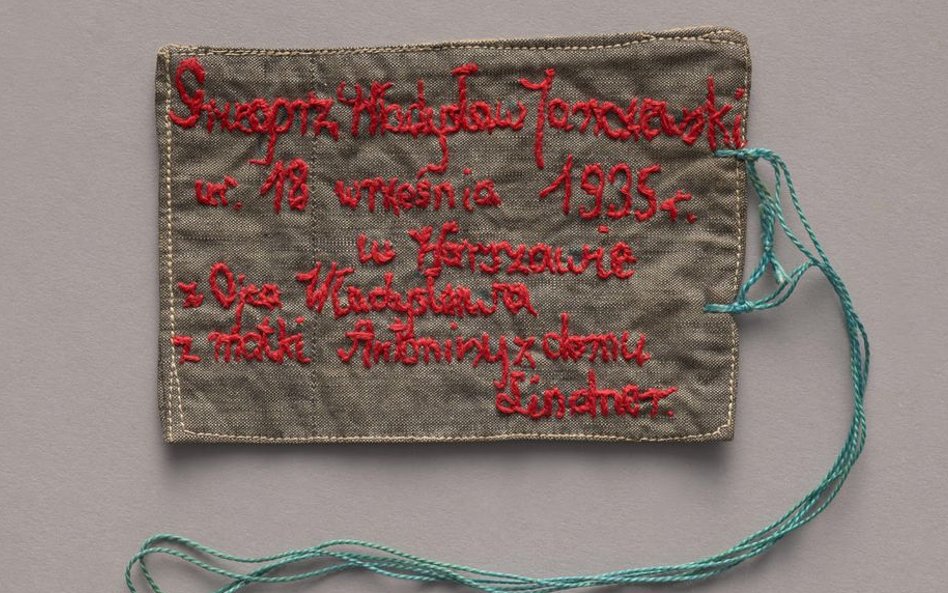 Grzegorz Władysław Jarczewski
ur. 18 września 1935 r.
w Warszawie
z Ojca Władysława
z matki Antoniny z domu
Lindner.